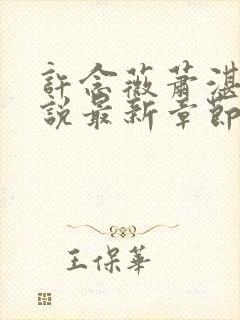 許念薇蕭湛
說最新章節
王保華